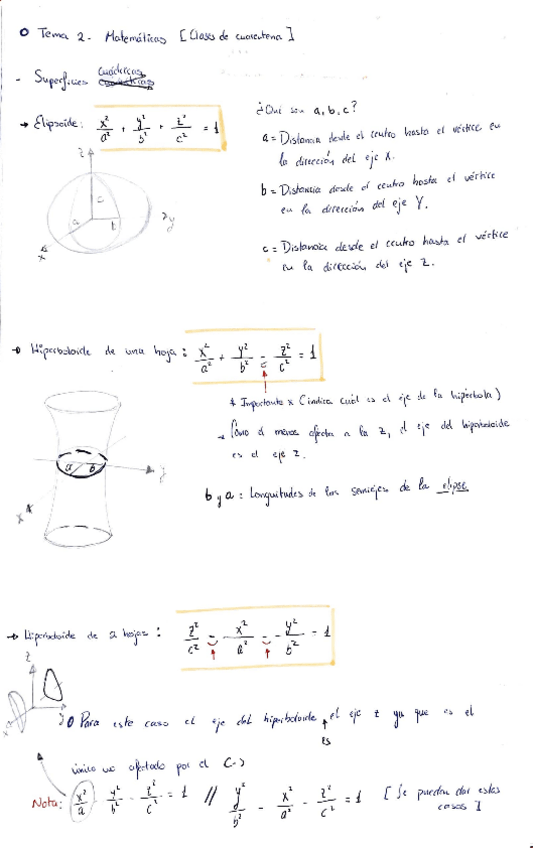 o Tema 2.- Matemáticas [Clases de cuarentena]
- Superficies cuádricas
→ Elipsoide: x²/a² + y²/b² + z²/c² = 1
¿Qué son a, b, c?
a = Distancia desde el centro hasta el vértice en
la dirección del eje X.
b = Distancia desde el centro hasta el vértice
en la dirección del eje Y.
c = Distancia desde el centro hasta el vértice
en la dirección del eje Z.
z
c
a
b
y
x
→ Hiperboloide de una hoja: x²/a² + y²/b² - z²/c² = 1
* Importante x (indica cuál es el eje de la hipérbola)
→ Como el menos afecta a la z, el eje del hiperboloide
es el eje z.
a b
y
x
b y a: Longuitudes de los semiejes de la elipse
→ Hiperboloide de 2 hojas: z²/c² - x²/a² - y²/b² = 1
z
x
o Para este caso el eje del hiperboloide es el eje z ya que es el
único no afectado por el (-)
Nota: x²/a - y²/b² - z²/c² = 1 // y²/b² - x²/a² - z²/c² = 1 [Se pueden dar estos
casos]